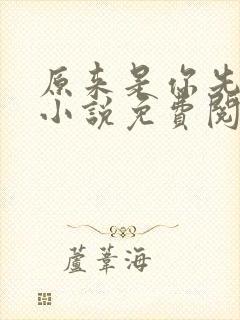 原来是你先
小說免費閱
蘆葦海